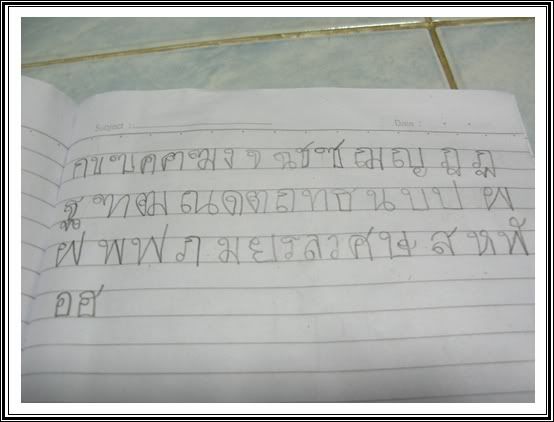 Subject : Date :
ก ข ฃ ค ฅ ฆ ง จ ฉ ช ซ ฌ ญ ฎ ฏ
ฐ ฑ ฒ ณ ด ต ถ ท ธ น บ ป ผ
ฝ พ ฟ ภ ม ย ร ล ว ศ ษ ส ห ฬ
อ ฮ